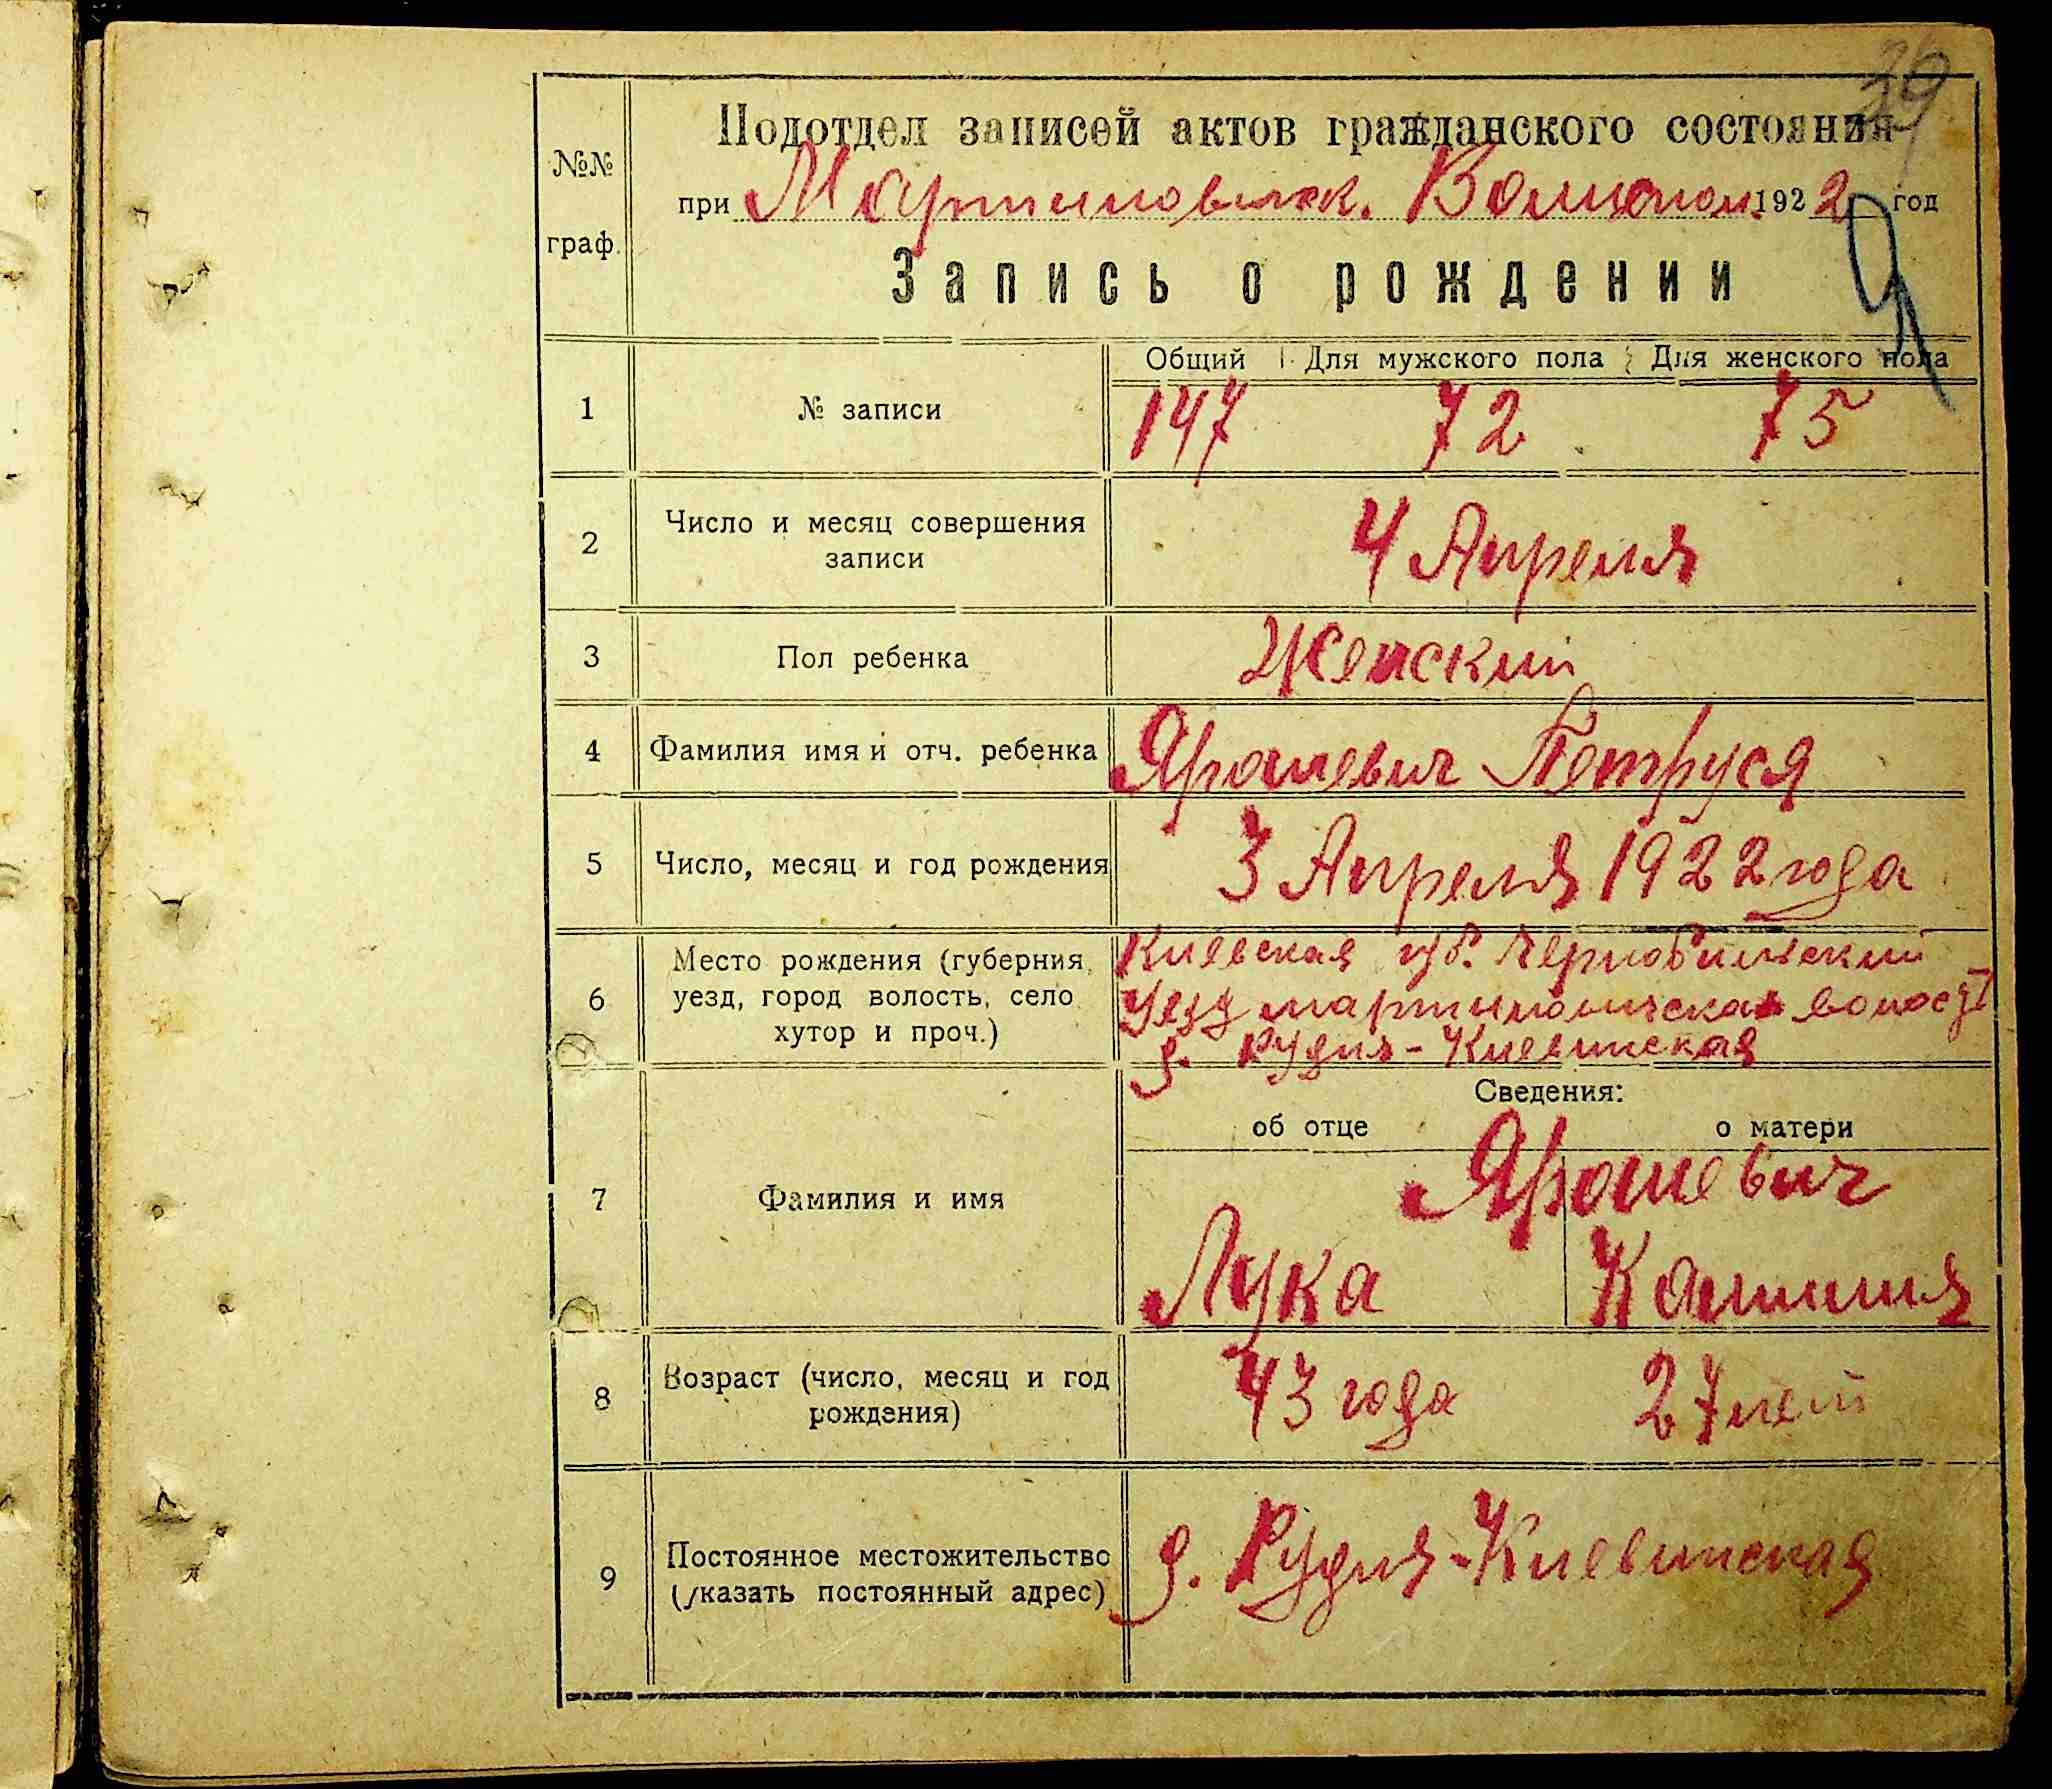 39
Подотдел записей актов гражданского состояния
при Мартиновическ. Волисполк. 1922 год
№№ граф.
Запись о рождении
Общий Для мужского пола Для женского пола
1 № записи 147 72 75
2 Число и месяц совершения записи 4 Апреля
3 Пол ребенка Женский
4 Фамилия имя и отч. ребенка Ярошевич Петруся
5 Число, месяц и год рождения 3 Апреля 1922 года
6 Место рождения (губерния, уезд, город волость, село хутор и проч.)
Киевская губ. Чернобильский
Уезд мартиновичская волость
д. Рудня-
Сведения:
об отце о матери
7 Фамилия и имя
Ярошевич
Лука
8 Возраст (число, месяц и год рождения) 43 года 27 лет
9 Постоянное местожительство (указать постоянный адрес) д. Рудня-